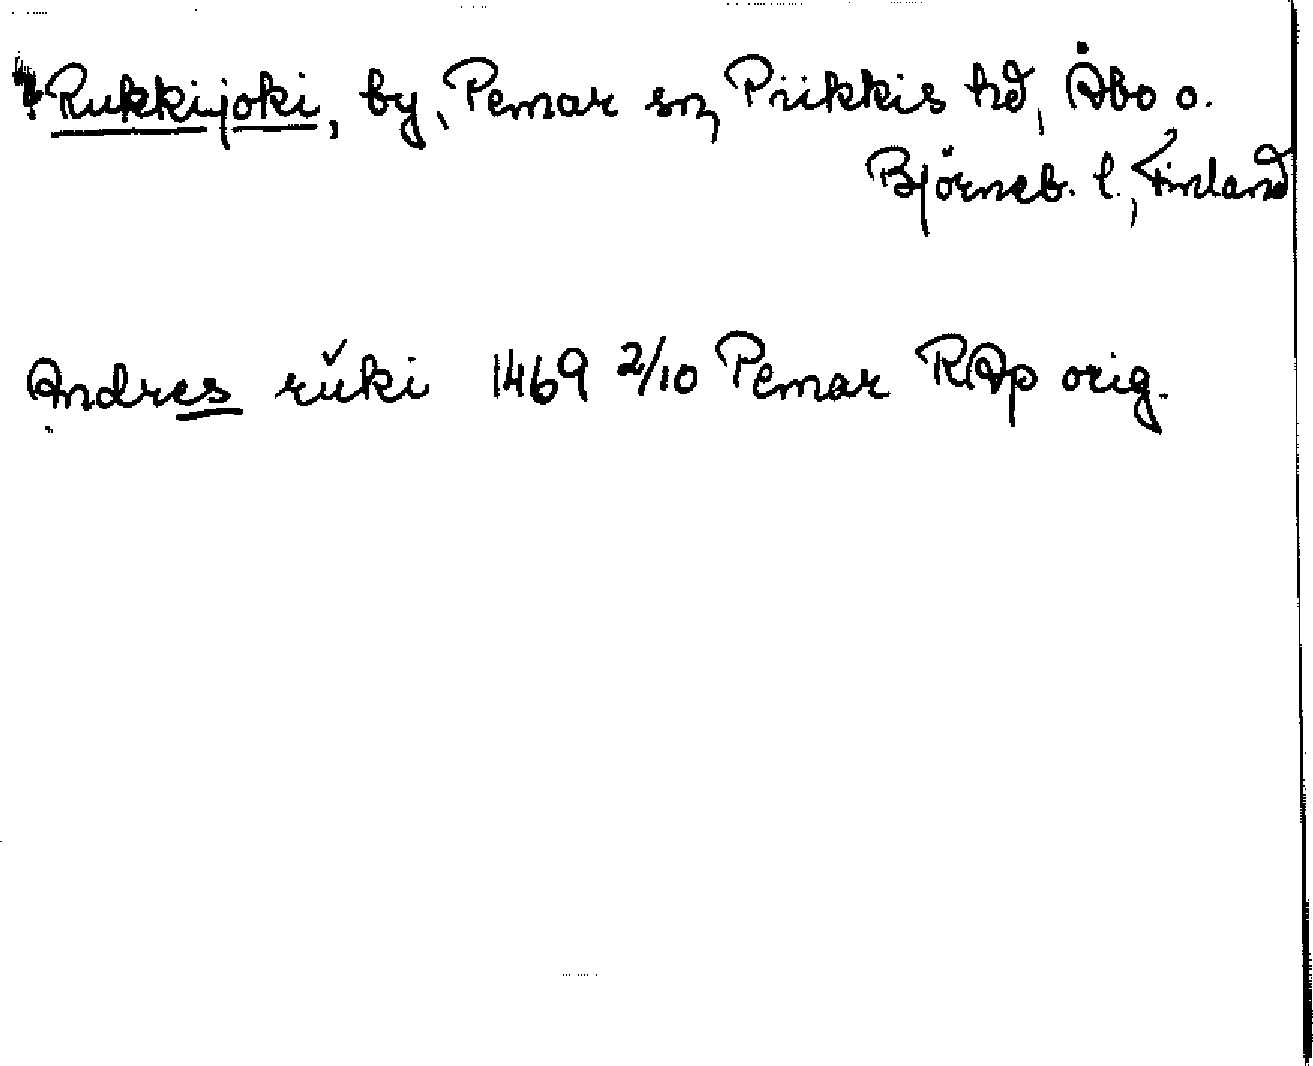 Rukkijoki, by, Pemar sn, Piikkis hd, Åbo o.
Björneb. l., Finland
Andres rŭki 1469 2/10 Pemar RAp orig.